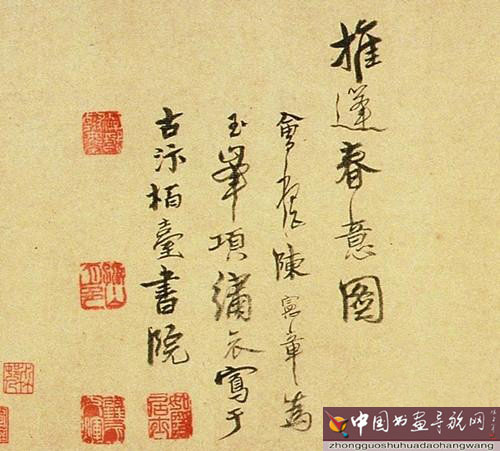 推篷春意圖
會稽陳憲章為
玉峯項繡衣寫于
古汴柏臺書院
中国书画导航网
zhongguoshuhuadaohangwang